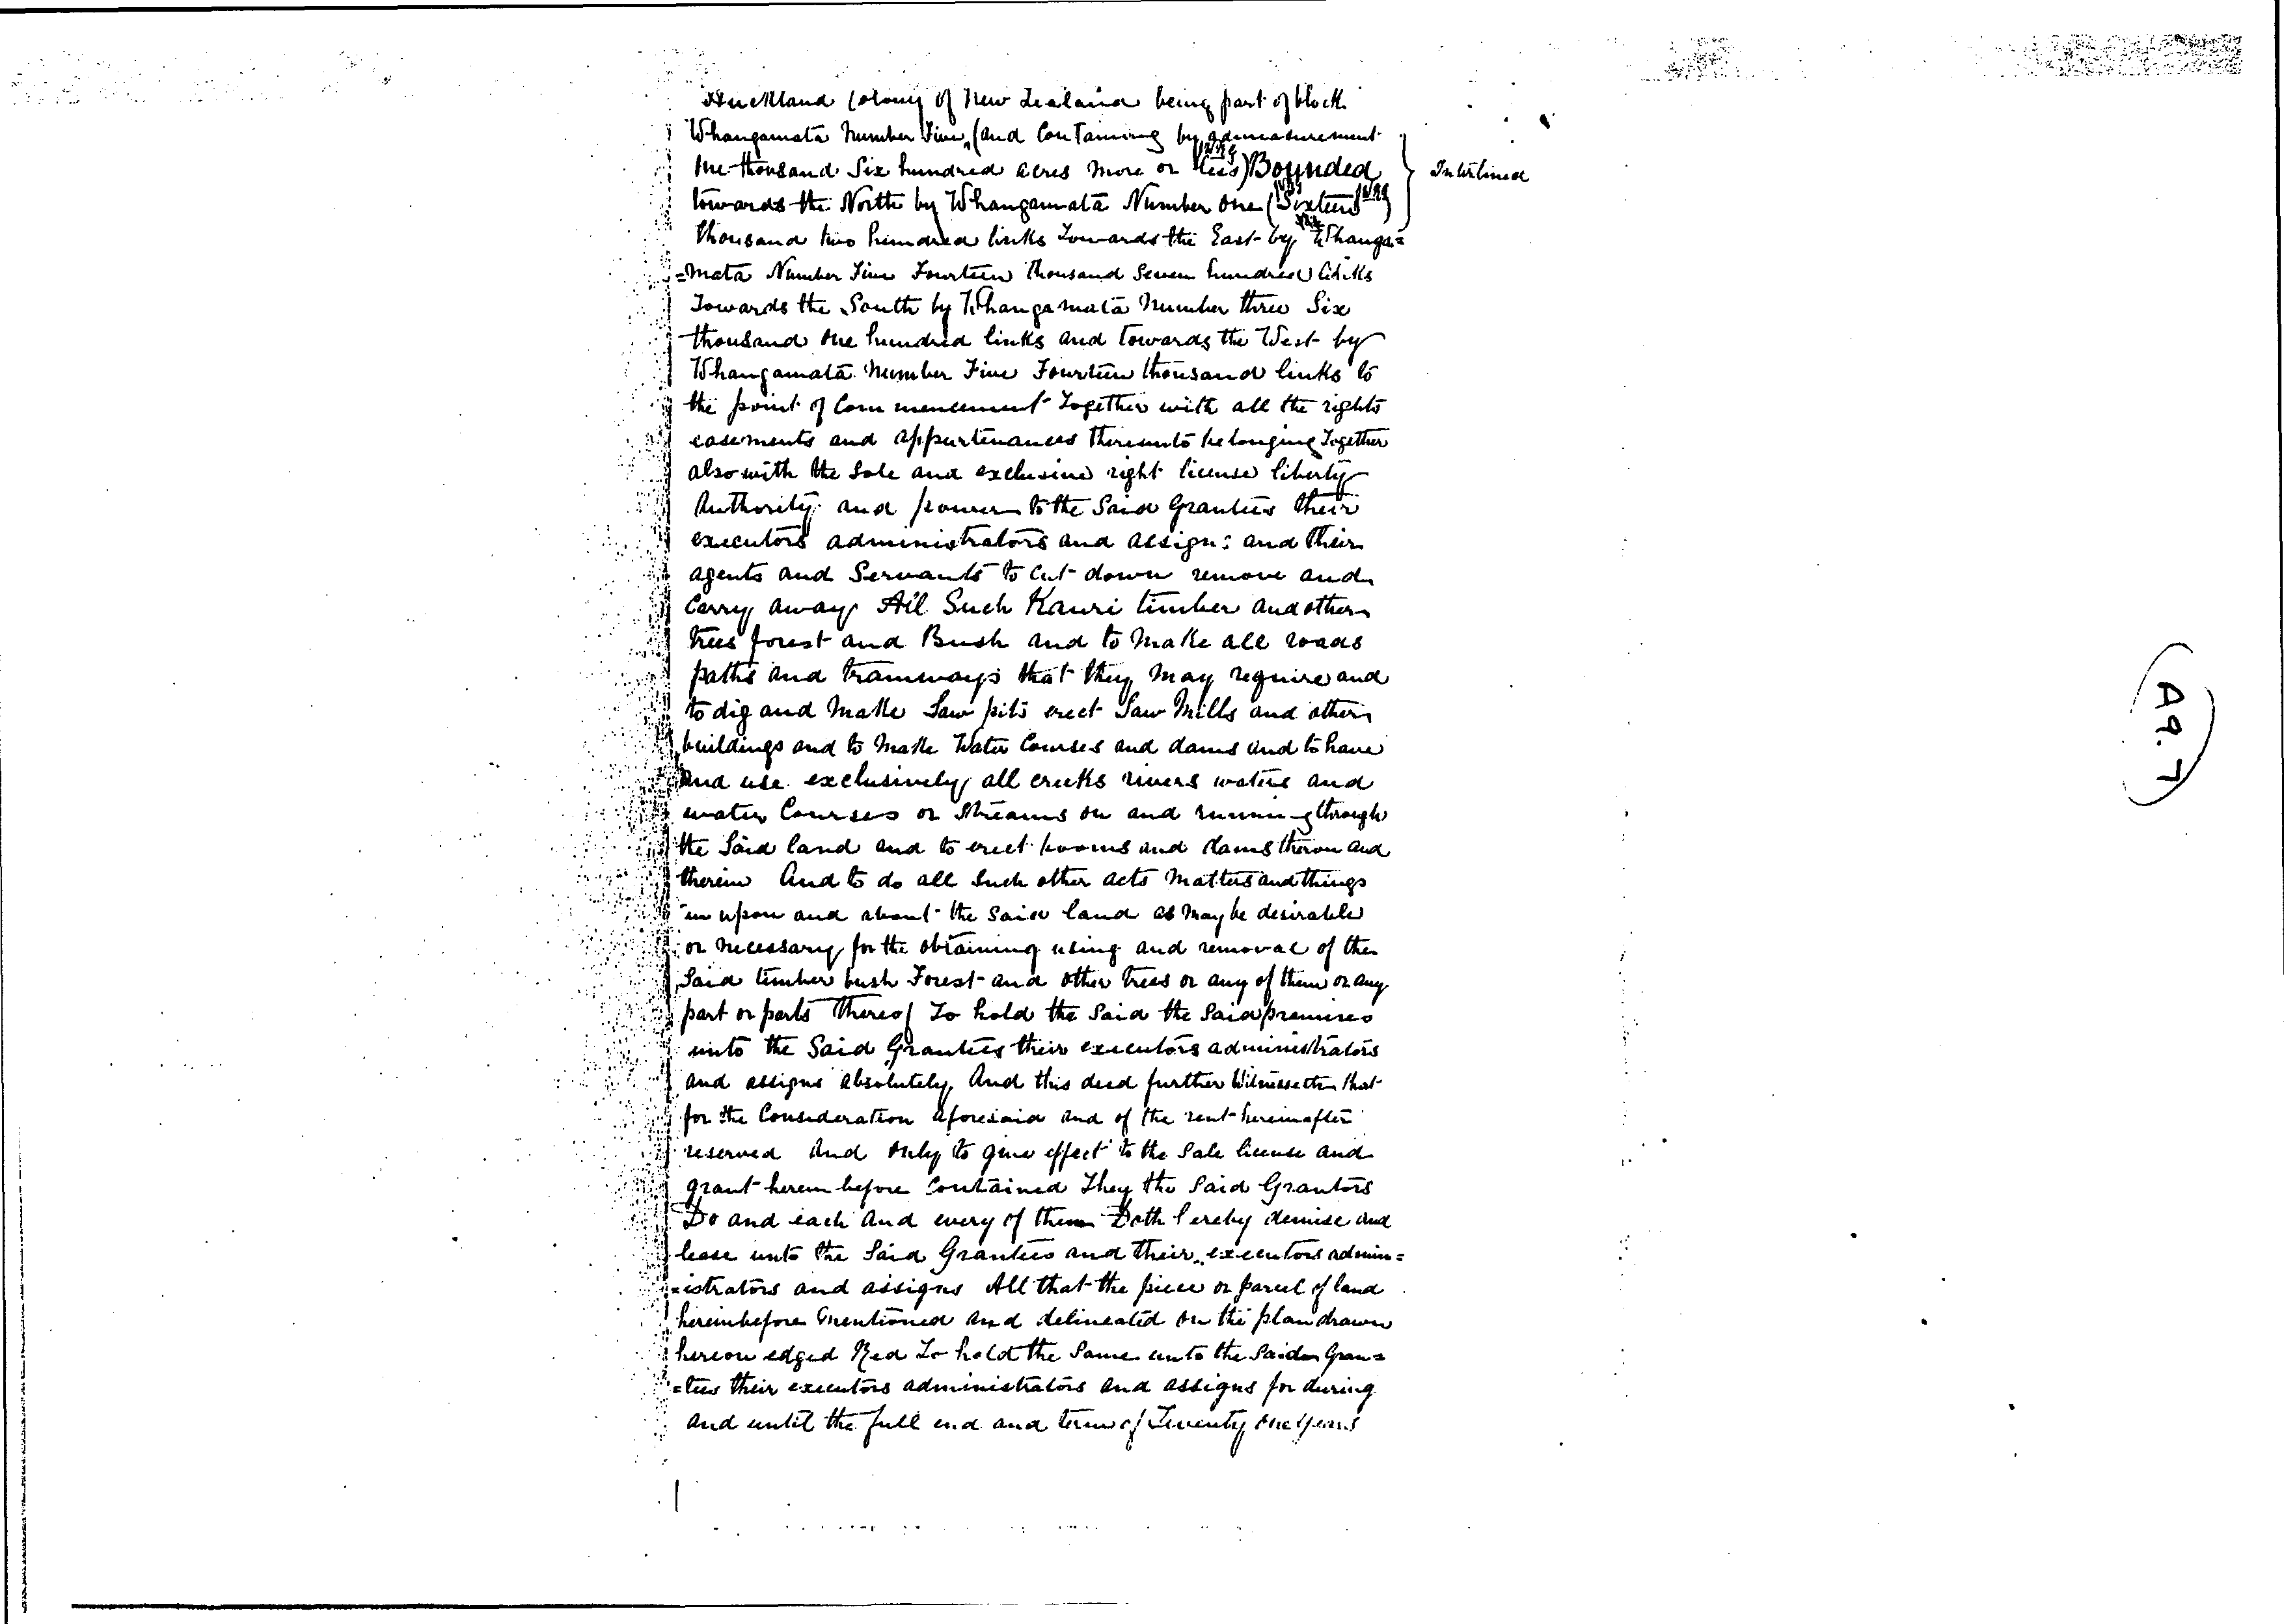 Auckland Colony of New Zealand being part of block
Whangamata Number Five, (and Containing by admeasurement
One thousand Six hundred acres more or less) Bounded
Interlined
towards the North by Whangamata Number One (Sixteen)
thousand two hundred links Towards the East by Whanga=
=mata Number Five Fourteen thousand Seven hundred links
Towards the South by Whangamata Number three Six
thousand One hundred links and towards the West by
Whangamata Number Five Fourteen thousand links to
the point of Commencement Together with all the rights
easements and appurtenances thereunto belonging Together
also with the Sole and exclusive right license liberty
Authority and power to the Said Grantees their
executors administrators and assigns and their
agents and Servants to Cut down remove and
Carry away All Such Kauri timber and other
trees forest and Bush and to Make all roads
paths and tramways that they may require and
to dig and Make Saw pits erect Saw Mills and other
buildings and to Make Water Courses and dams and to have
and use exclusively all creeks rivers waters and
water Courses or Streams on and running through
the Said land and to erect booms and dams thereon and
therein And to do all Such other acts Matters and things
in upon and about the Said land as May be desirable
or necessary for the obtaining using and removal of the
Said timber bush Forest and other trees or any of them or any
part or parts thereof To hold the Said the Said premises
unto the Said Grantees their executors administrators
and assigns absolutely And this deed further Witnesseth that
for the Consideration aforesaid and of the rent hereinafter
reserved And Only to give effect to the Sale license and
grant herein before Contained They the Said Grantors
Do and each And every of them Doth hereby demise and
lease unto the Said Grantees and their executors admin=
=istrators and assigns All that the piece or parcel of land
hereinbefore Mentioned and delineated On the plan drawn
hereon edged Red To hold the Same unto the Said Gran=
=tees their executors administrators and assigns for during
and until the full end and term of Twenty One Years